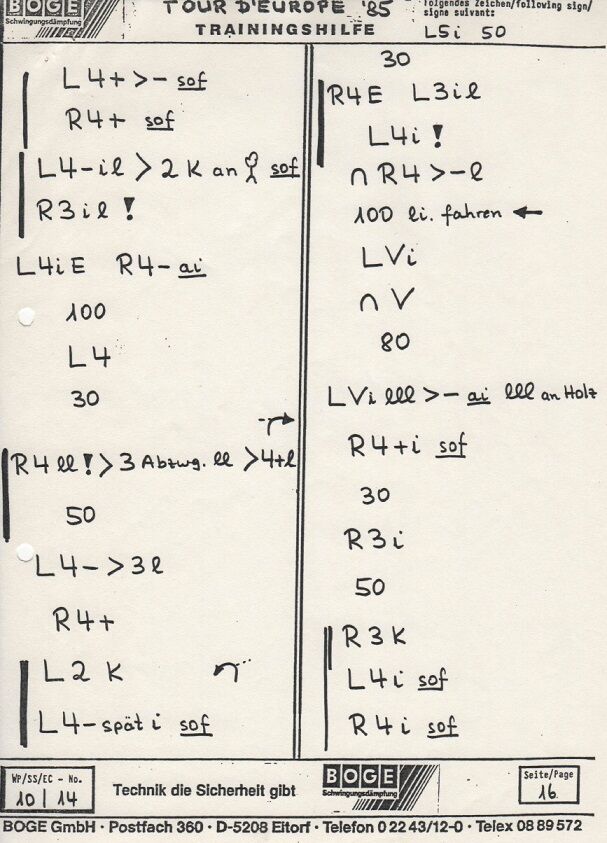 BOGE
Schwingungsdämpfung
TOUR D'EUROPE '85
TRAININGSHILFE
folgendes Zeichen/following sign/
signe suivant:
L5i 50
L4+>- sof
R4+ sof
L4-il > 2 K an sof
R3il !
L4iE R4- ai
100
L4
30
R4 ll !>3 Abzwg. ll >4+l
50
L4->3l
R4+
L2 K
L4-spät i sof
30
R4E L3il
L4i !
∩ R4 >-l
100 li. fahren ←
LVi
∩ V
80
LVi lll >- ai lll an Holz
R4+i sof
30
R3i
50
R3K
L4i sof
R4i sof
WP/SS/EC - No.
10 | 14
Technik die Sicherheit gibt
BOGE
Schwingungsdämpfung
Seite/Page
16
BOGE GmbH · Postfach 360 · D-5208 Eitorf · Telefon 0 22 43/12-0 · Telex 08 89 572